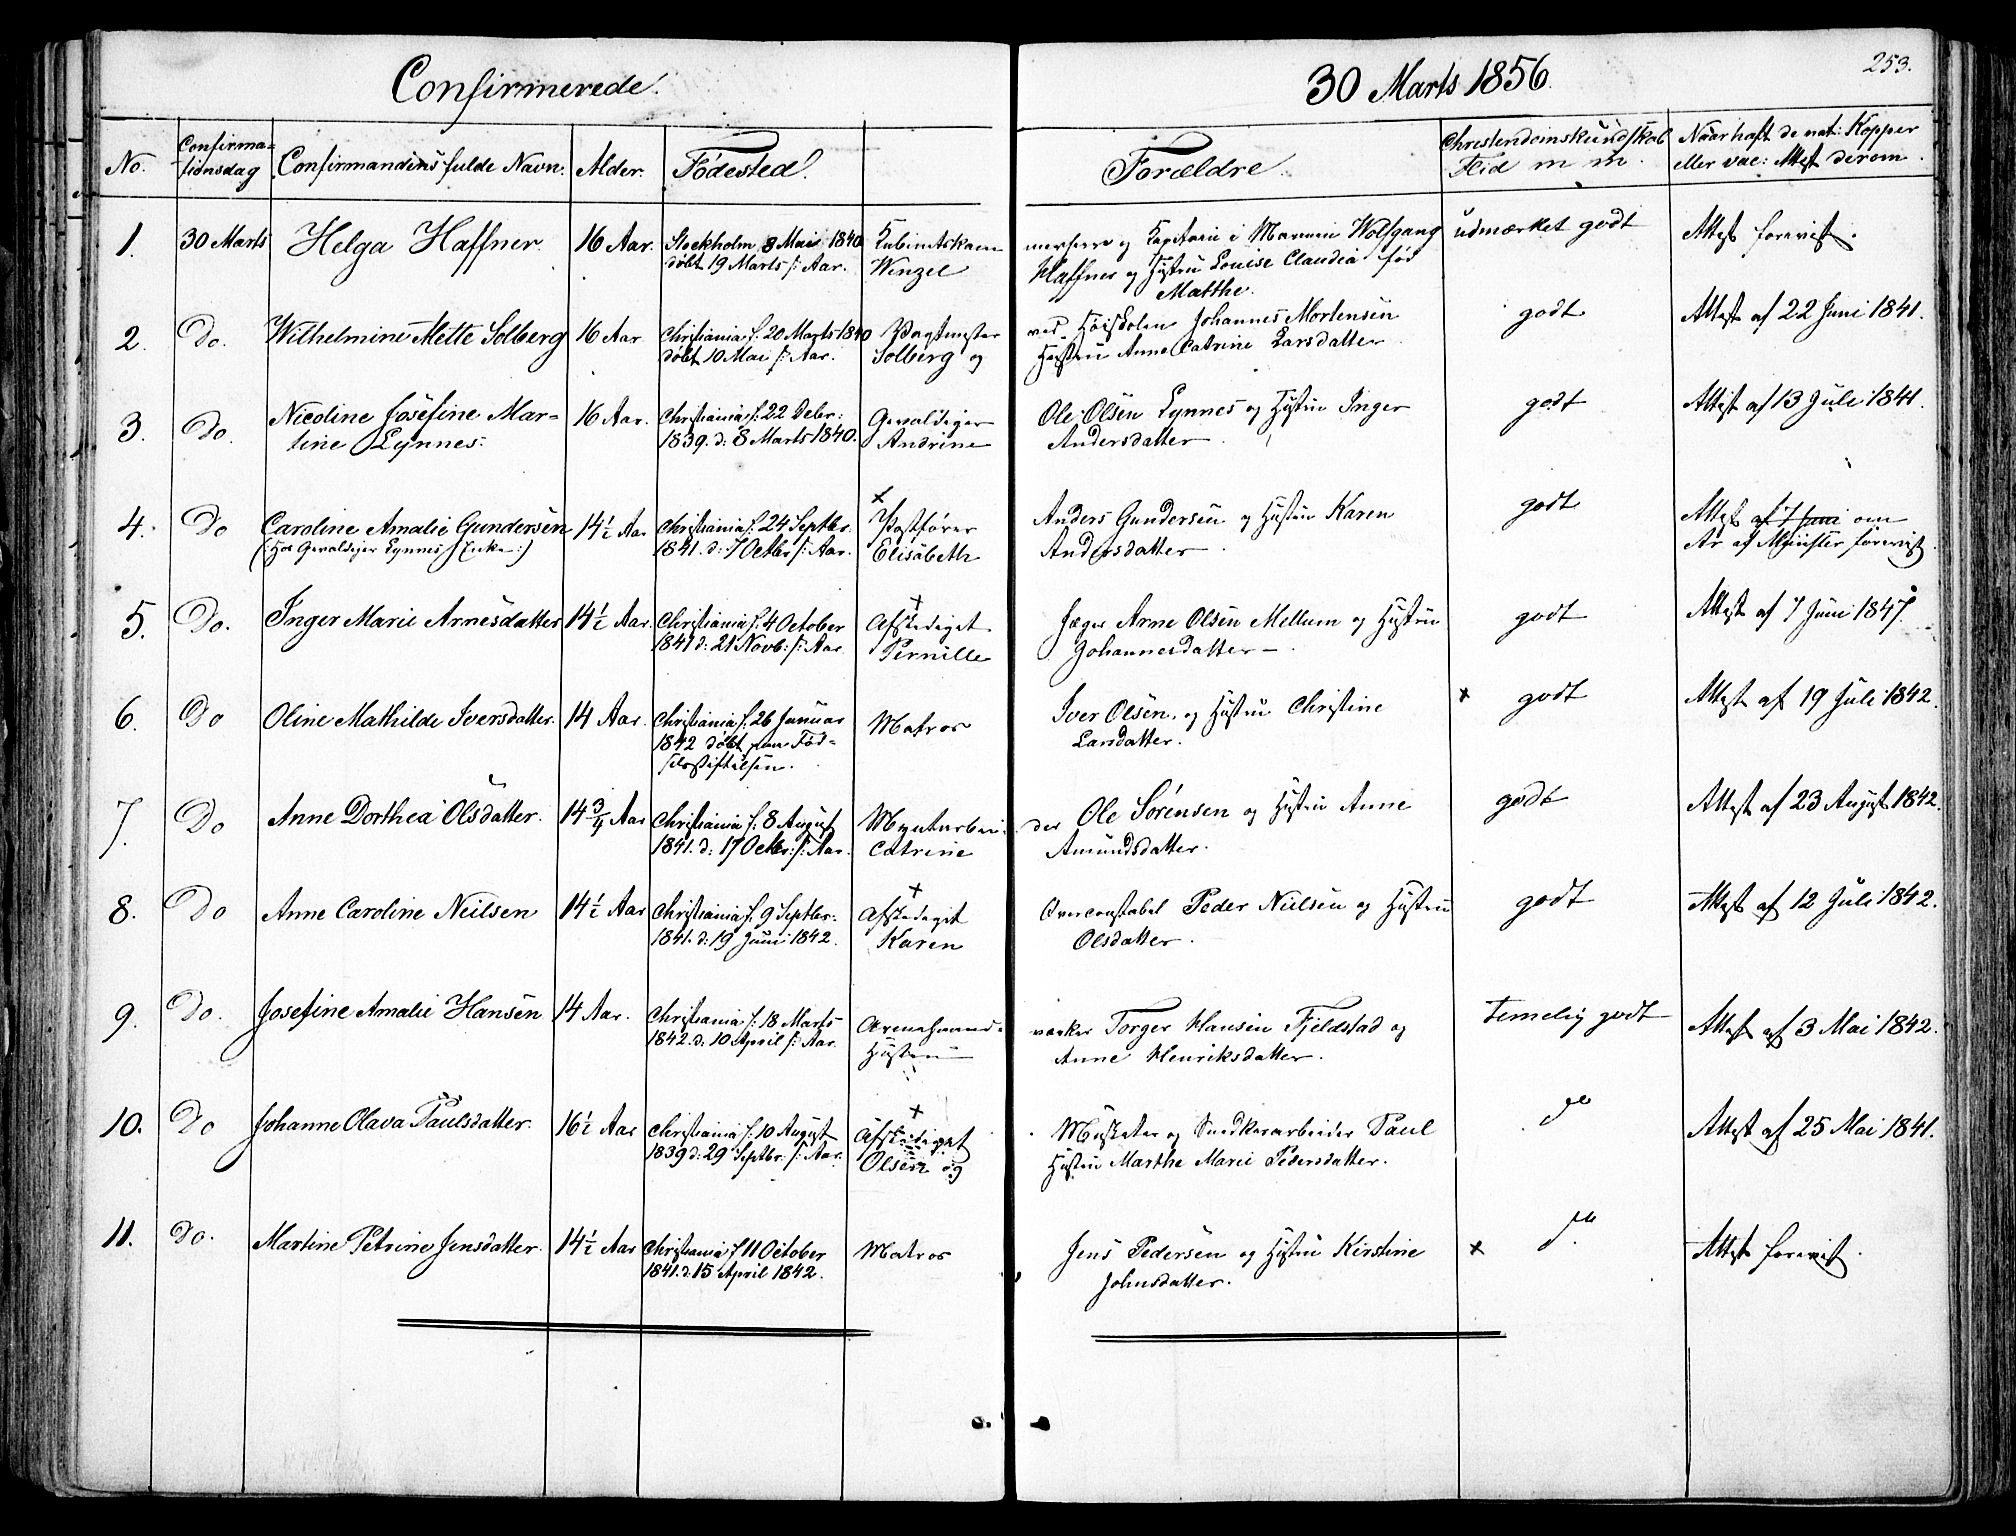 Confirmerede.
30 Marts 1856.
253.
No. Confirma-tionsdag Confirmandens fulde Navn. Alder. Fødested. Forældre. Christendomskundskab Flid m m. Naar haft de nat: Kopper eller vac: Attest derom.
1. 30 Marts Helga Haffner. 16 Aar. Stockholm 8 Mai 1840 Kabinetskam merherre og Kapitain i Marinen Wolfgang udmærket godt Attest forevist.
døbt 19 Marts s: Aar. Wenzel Haffner og Hustru Louise Claudia fød
Matthe.
2. Do. Wilhelmine Mette Solberg 16 Aar Christiania f. 20 Marts 1840 Vagtmester ved Høiskolen Johannes Mortensen godt Attest af 22 Juni 1841.
døbt 10 Mai s: Aar. Solberg og Hustru Anne Catrine Larsdatter
3. Do. Nicoline Josefine Mar- 16 Aar. Christiania f. 22 Debr: Gevaldiger Ole Olsen Lynnes og Hustru Inger godt Attest af 13 Juli 1841.
tine Lynnes. 1839. d: 8 Marts 1840. Andrine Andersdatter
4. Do Caroline Amalie Gundersen 14½ Aar Christiania f. 24 Septbr. Postfører Anders Gundersen og Hustru Karen godt Attest af 7 Juni om
(: Hos Gevaldiger Lynnes Enke :) 1841. d: 7 Octbr s: Aar. Elisabeth Andersdatter Ar af Minister forevist.
5. Do. Inger Marie Arnesdatter 14½ Aar. Christiania f. 4 October Afskediget Jæger Arne Olsen Mellum og Hustru godt Attest af 7 Juni 1847.
1841 d: 21 Novb: s: Aar Pernille Johannesdatter
6. Do Oline Mathilde Iversdatter. 14 Aar. Christiania f. 26 Januar Matros Iver Olsen og Hustru Christine x godt Attest af 19 Juli 1842.
1842 døbt paa Fød- Larsdatter.
selsstiftelsen.
7. Do Anne Dorthea Olsdatter. 14¾ Aar Christiania f. 8 August Myntarbei der Ole Sørensen og Hustru Anne godt Attest af 23 August 1842.
1841. d: 17 Octbr: s: Aar. Catrine Amundsdatter.
8. Do Anne Caroline Neilsen 14½ Aar Christiania f. 9 Septbr: Afskediget Overconstabel Peder Nielsen og Hustru godt Attest af 12 Juli 1842.
1841. d: 19 Juni 1842. Karen Olsdatter.
9. Do. Josefine Amalie Hansen 14 Aar. Christiania f. 18 Marts værker Torger Hansen Fjeldstad og temelig godt Attest af 3 Mai 1842.
1842. d: 10 April s: Aar. Hustru Anne Henriksdatter.
10. Do Johanne Olava Paulsdatter. 16½ Aar Christiania f. 10 August Afskediget Musketer og Snedkerarbeider Paul do Attest af 25 Mai 1841.
1839 d: 29 Septbr. s: Aar. Olsen og Hustru Marthe Marie Pedersdatter.
11. Do. Martine Petrine Jensdatter. 14½ Aar Christiania f 11 October Matros Jens Pedersen og Hustru Kirstine x do Attest forevist.
1841. d: 15 April 1842. Johnsdatter.